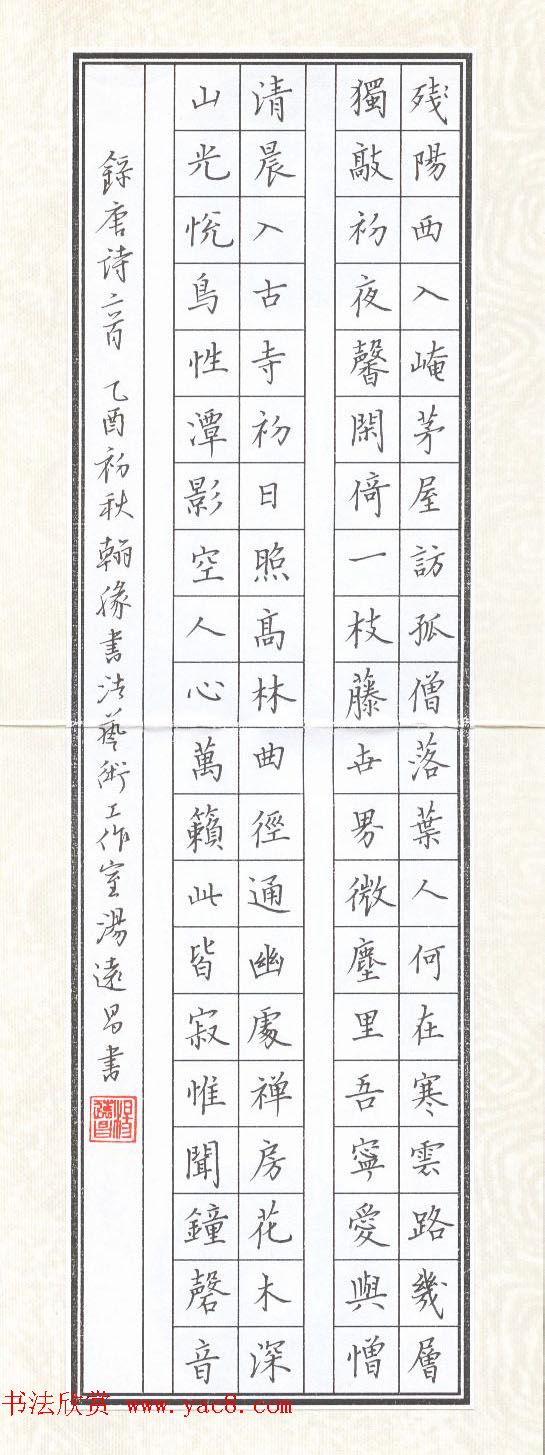 残陽西入崦茅屋訪孤僧落葉人何在寒雲路幾層
獨敲初夜馨閑倚一枝藤世界微塵里吾寧愛與憎
清晨入古寺初日照高林曲徑通幽處禅房花木深
山光悦鳥性潭影空人心萬籟此皆寂惟聞鐘磬音
錄唐詩二首 乙酉初秋翰緣書法藝術工作室湯遠昌書
书法欣赏 www.yac8.com